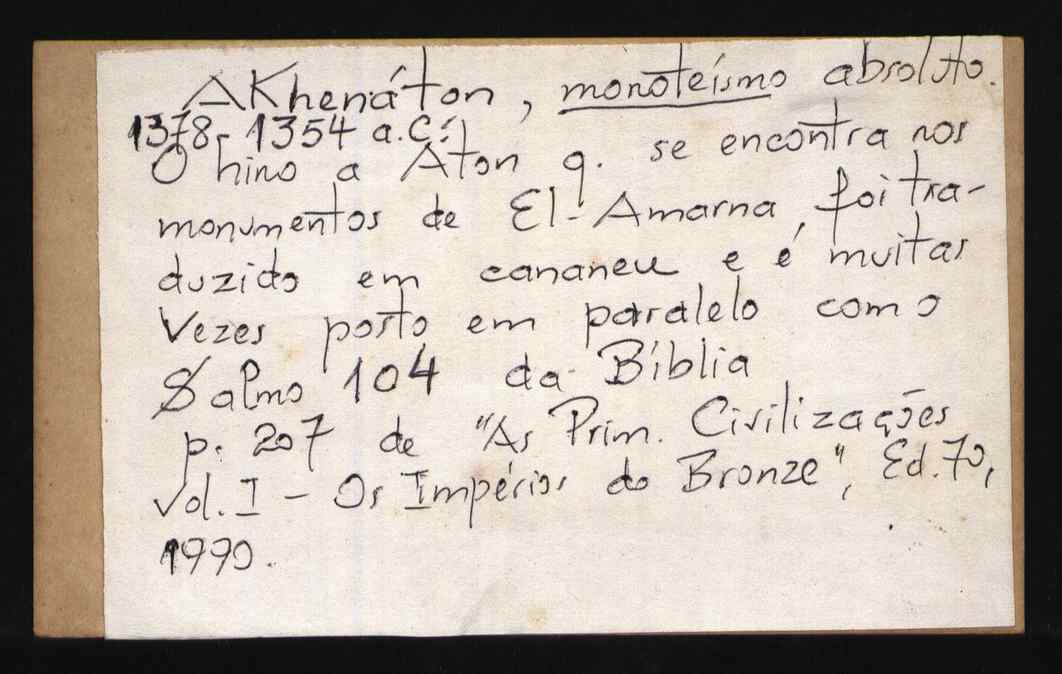 AKhenáton, monoteísmo absoluto.
1378-1354 a.C.
O hino a Aton q. se encontra nos
monumentos de El-Amarna, foi tra-
duzido em cananeu e é muitas
vezes posto em paralelo com o
Salmo 104 da Bíblia
p. 207 de "As Prim. Civilizações
vol. I - Os Impérios do Bronze", Ed. 70,
1990.